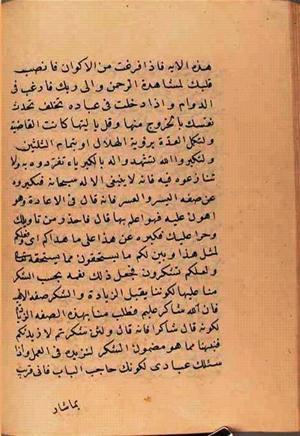 هذه الآية فاذا فرغت من الاكوان فانصب
قلبك لمشاهدة الرحمن والى ربك فارغب فى
الدوام واذا دخلت فى عباده تخلف تحدث
نفسك بالخروج منها وقل ياليتها كانت القاضية
ولتكملوا العدة برؤية الهلال او بتمام الثلثين
ولتكبروا الله تشهدوا له بالكبرياء تفردوه به ولا
تنازعوه فيه فانه لا ينبغى الا له سبحانه فتكبروه
عن صفة اليسر والعسر فانه قال فى الاعادة وهو
اهون عليه فهو اعلم بها قال فاحذر من تاويلك
وحرا عليك فكبره عن هذا على ما هداكم اى وفقكم
لمثل هذا وبين لكم ما يستحقون مما يستحقه
ولعلكم تشكرون فجعل ذلك نعمة يجب الشكر
منا عليها لكوننا يقبل الزيادة والشكر صفة الهية
فان الله شاكر عليم فطلب منا بهذه الصفة
كونه قال شاكرا فانه قال ولئن شكرتم لازيدنكم
فنبهنا مما هو مضمون الشكر لنزيده فى العمل واذا
سئلك عبادى كونك حاجب الباب فانى قريب
بما شاء